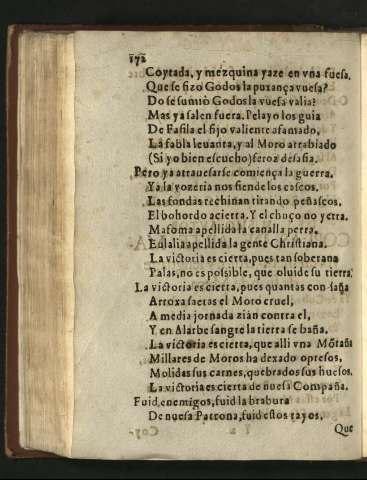 172
Coytada, y mezquina yaze en vna fuesa.
Que se fizo Godos la puxança vuesa?
Do se sumiò Godos la vuesa valia?
Mas ya salen fuera. Pelayo los guia
De Fafila el fijo valiente afamado,
La fabla leuanta, y al Moro arrabiado
(Si yo bien escucho) feroz desafia.
Pero ya atrauesarse comiença la guerra.
Ya la vozeria nos fiende los cascos.
Las fondas rechinan tirando peñascos.
El bohordo acierta. Y el chuço no yerra.
Mafoma apellida la canalla perra.
Eulalia apellida la gente Christiana.
La victoria es cierta, pues tan soberana
Palas, no es possible, que oluide su tierra.
La victoria es cierta, pues quantas con saña
Arroxa saetas el Moro cruel,
A media jornada zian contra el,
Y en Alarbe sangre la tierra se baña.
La victoria es cierta, que alli vna Mõtaña
Millares de Moros ha dexado opresos,
Molidas sus carnes, quebrados sus huesos.
La victoria es cierta de nuesa Compaña.
Fuid, enemigos, fuid la brabura
De nuesa Patrona, fuid estos rayos,
Que